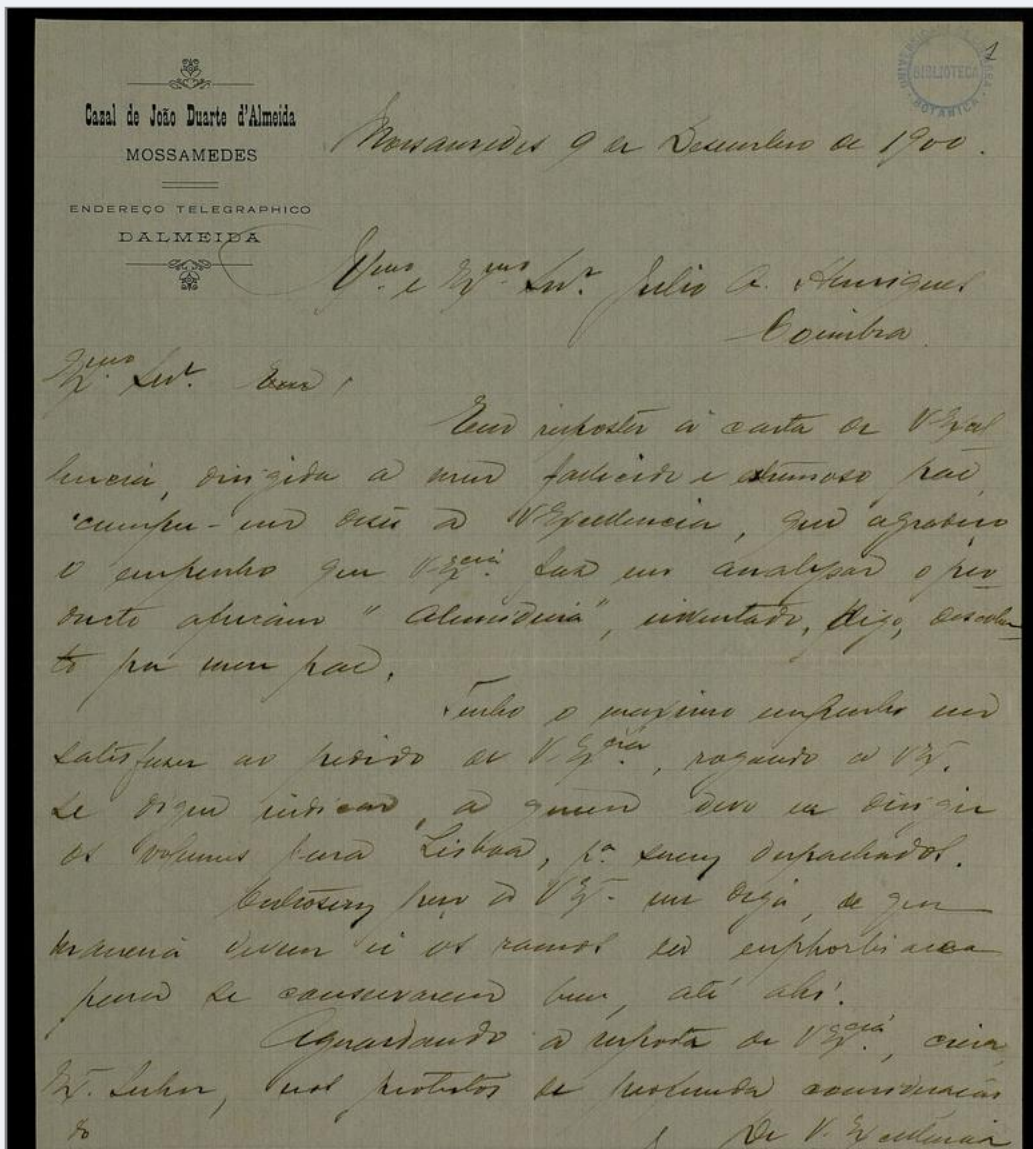 1
UNIVERSIDADE DE COIMBRA
BIBLIOTECA
BOTANICA
Cazal de João Duarte d'Almeida
MOSSAMEDES
ENDEREÇO TELEGRAPHICO
DALMEIDA
Mossamedes 9 de Desembro de 1900.
Illmo e Exmo Snr. Julio A. Henriques
Coimbra.
Exmo Snr.
Em resposta á carta de V Excel
lencia, dirigida a meu fallecido e estremoso pae,
cumpre-me diser a V Excellencia, que agradeço
o empenho que V. Excia. faz em analysar o pro
ducto africano "Almeidina", inventado, digo, descober
to por meu pae.
Tenho o maximo empenho em
satisfaser ao pedido de V. Excia., rogando a V Ex.
se digne indicar, a quem devo eu dirigir
os volumes para Lisboa, pa. serem despachados.
Outrosim peço a V Ex. me diga, de que
maneira devem ir os ramos da euphorbiacea
para se conservarem bem, até ahi.
Aguardando a resposta de V Excia., creia,
Ex. Senhor, nos protestos de profunda consideração
do
De V. Excellencia